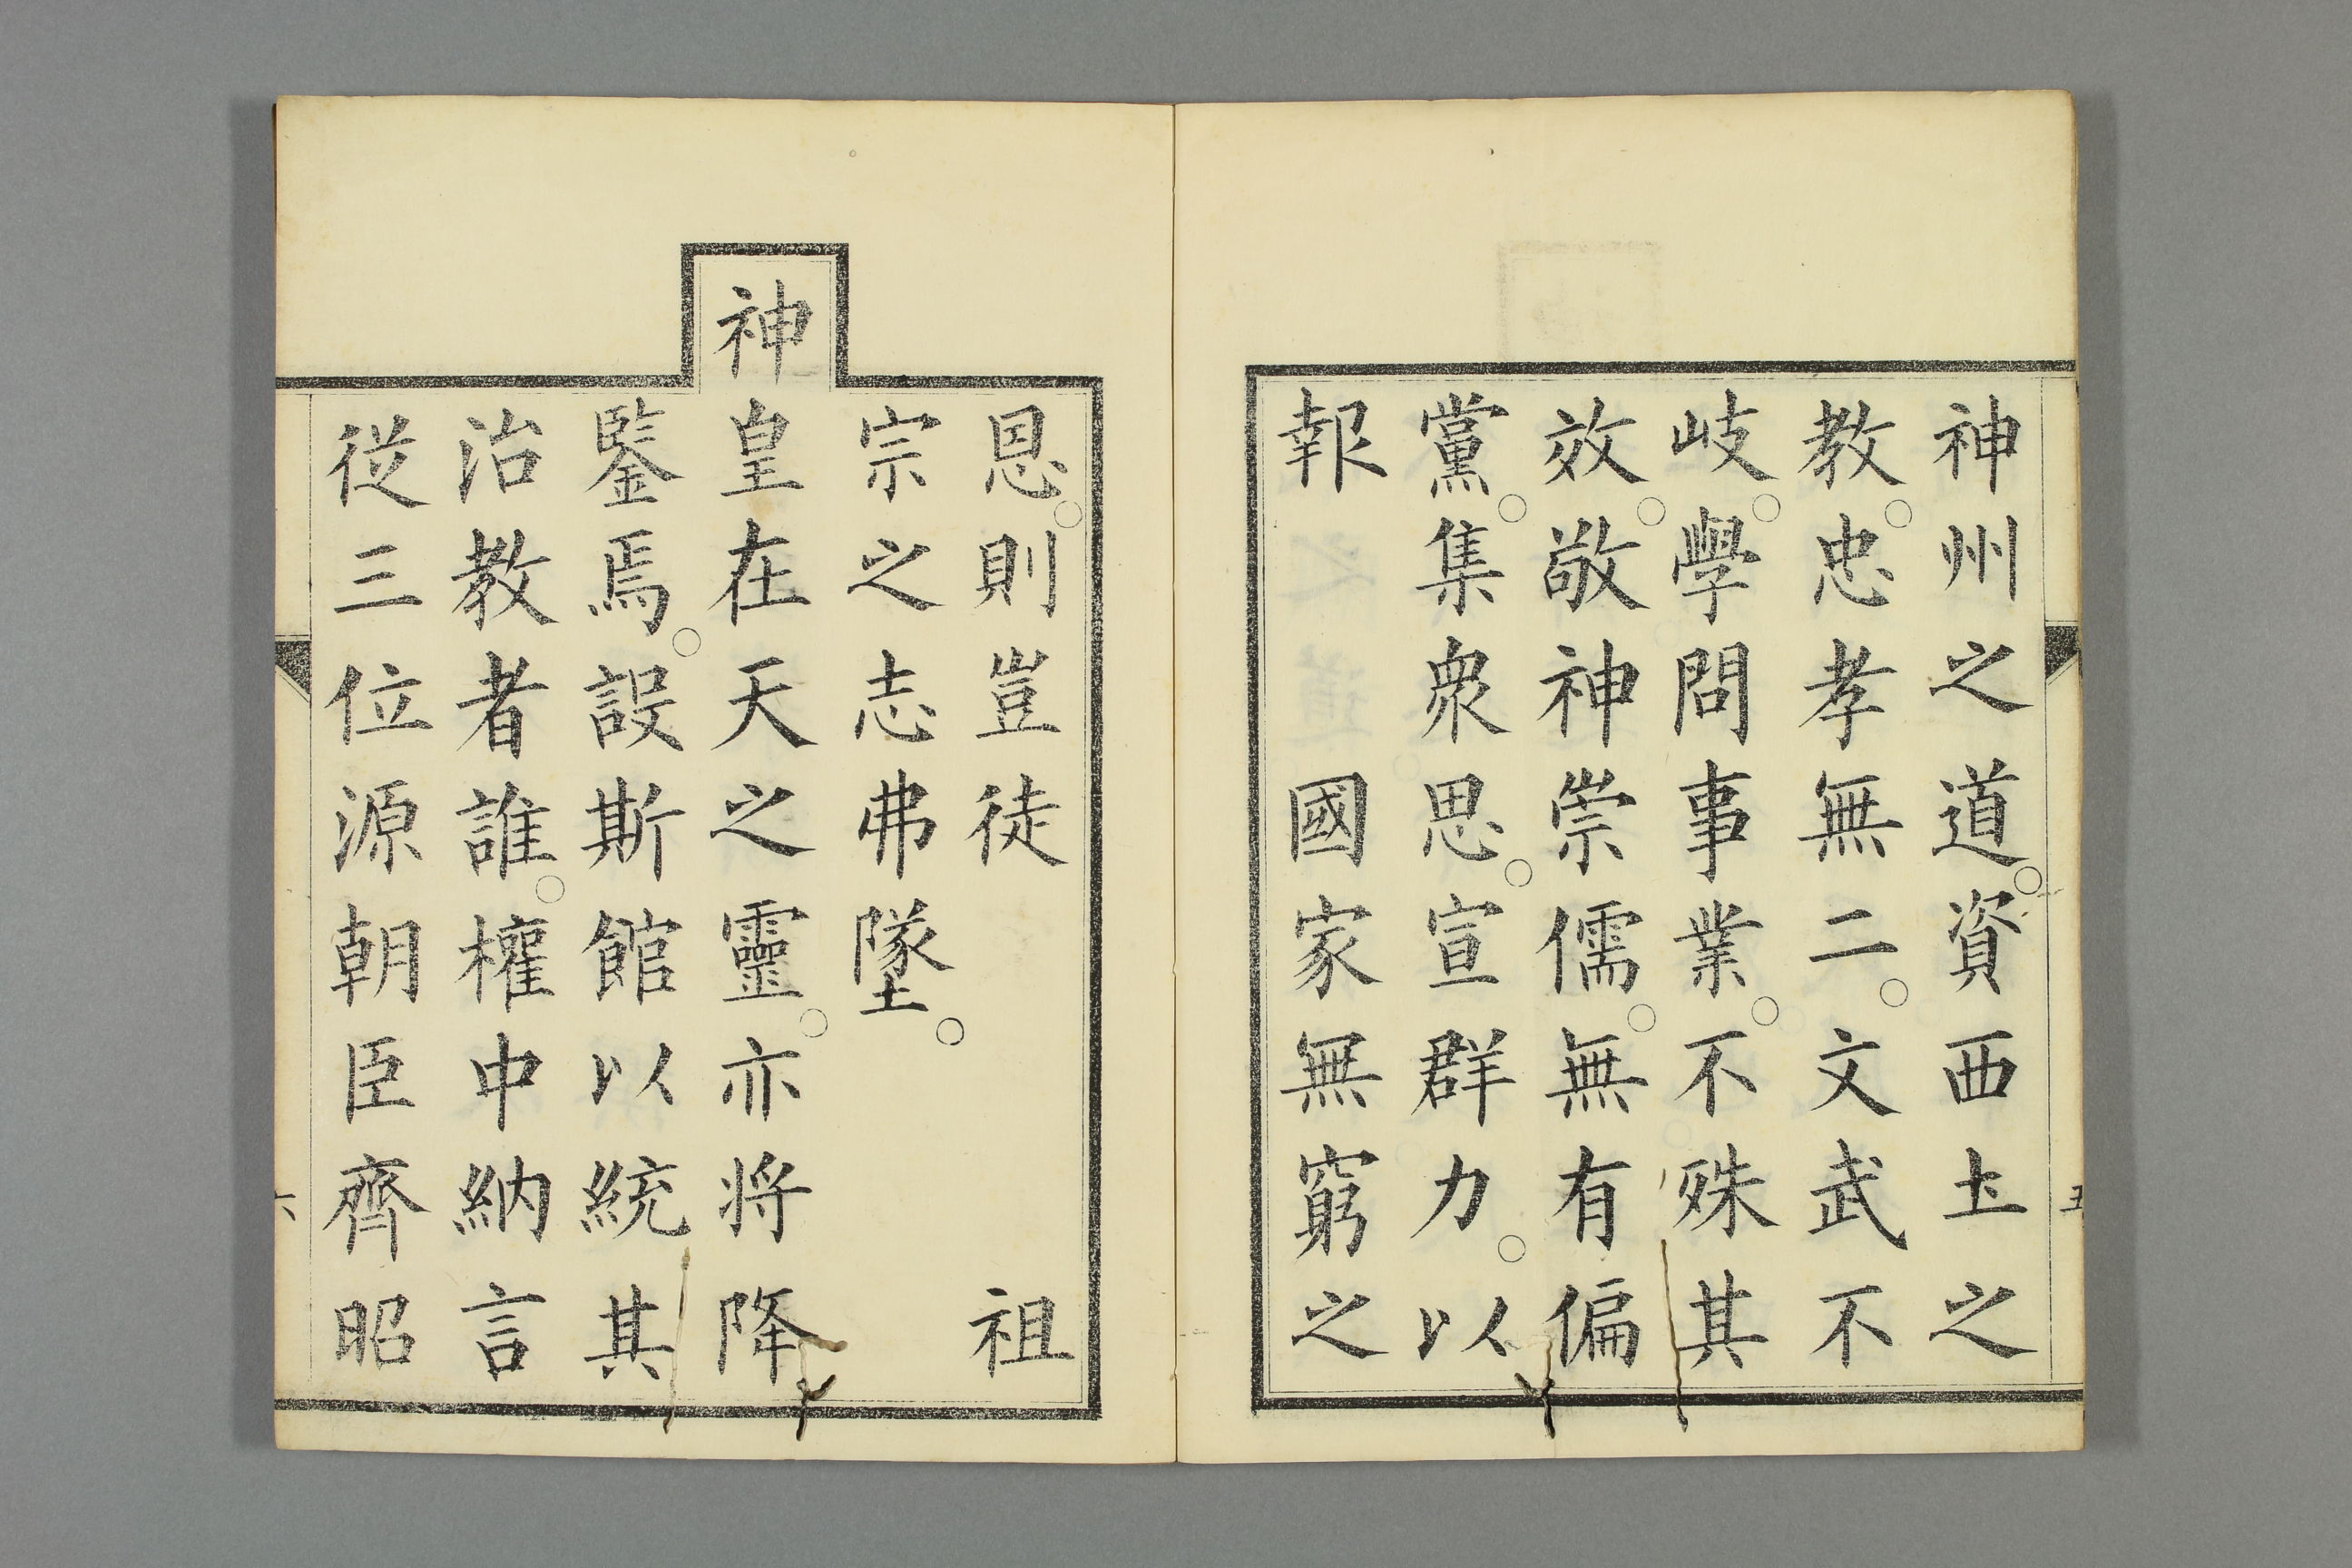 神州之道。資西土之
教。忠孝無二。文武不
岐。學問事業。不殊其
效。敬神崇儒。無有偏
黨。集衆思。宣群力。以
報國家無窮之
恩。則豈徒祖
宗之志弗墜。
神皇在天之靈。亦将降
鑒焉。設斯館以統其
治教者誰。權中納言
従三位源朝臣齊昭
五
六